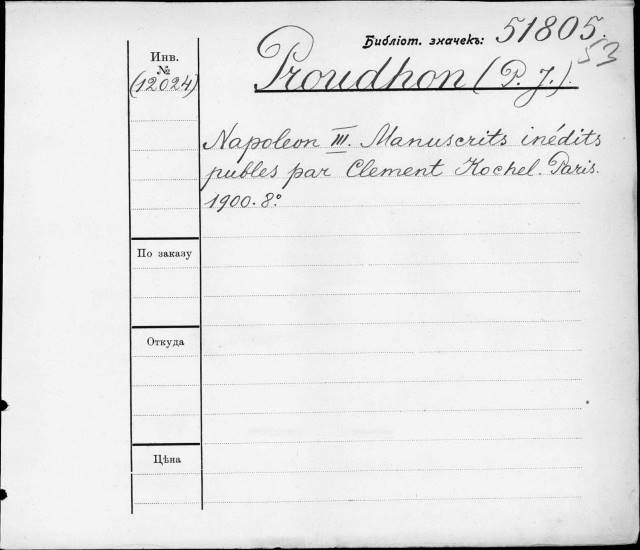 Библіот. значекъ: 51805.
53
Инв.
№
(12024)
Proudhon (P. J.).
Napoleon III. Manuscrits inédits
publes par Clement Kochel. Paris.
1900. 8º
По заказу
Откуда
Цѣна